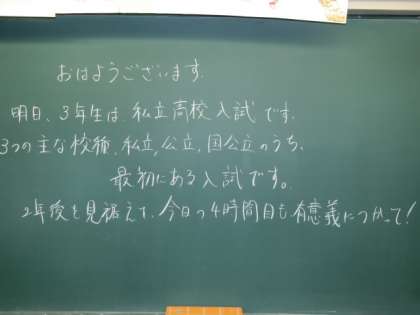 おはようございます.
明日、3年生は、私立高校入試です.
3つの主な校種、私立,公立,国公立のうち、
最初にある入試です。
2年後を見据えて、今日の4時間目も有意義につかって!